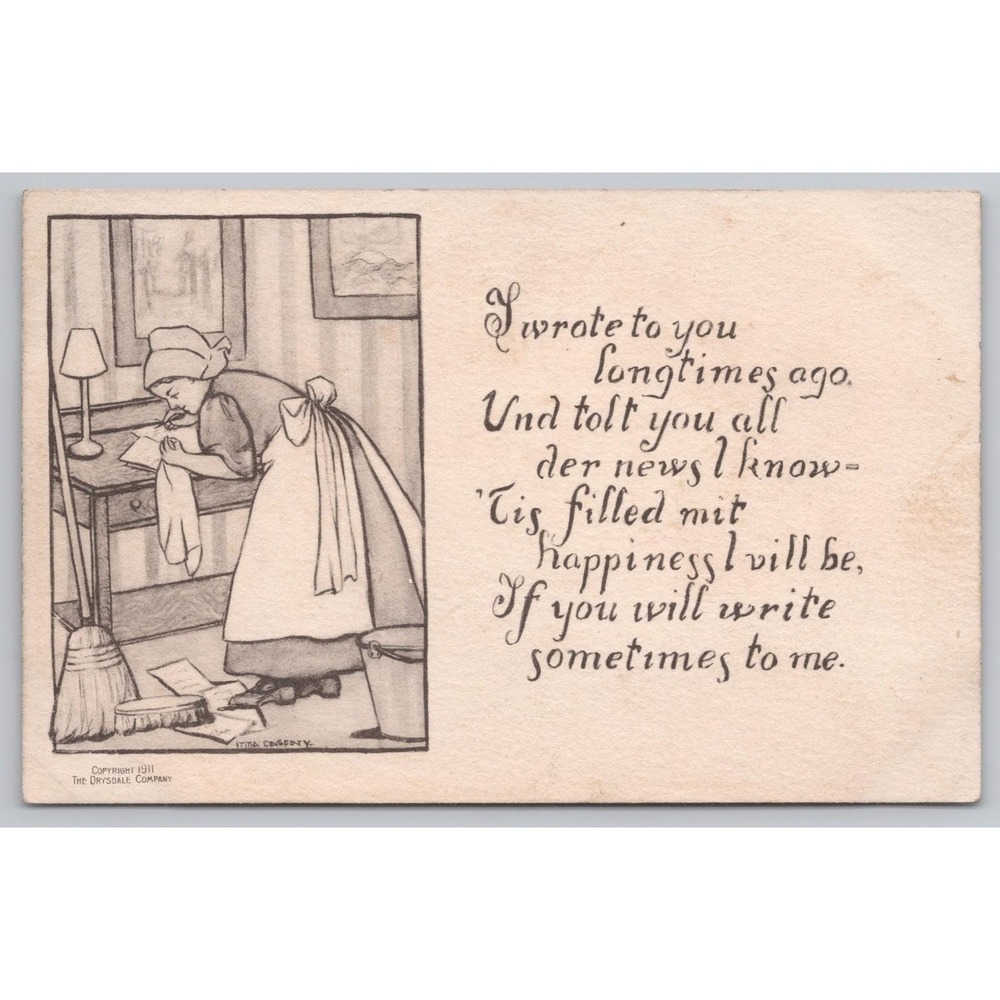 I wrote to you
longtimes ago,
Und tolt you all
der news I know-
'Tis filled mit
happiness I vill be,
If you will write
sometimes to me.
Irma Caspary
COPYRIGHT 1911
THE DRYSDALE COMPANY